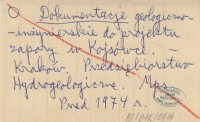 Dokumentacje geologiczno-
-inżynierskie do projektu
zapory w Kojsówce. -
Kraków. Przedsiębiorstwo
Hydrogeologiczne. Mps.
Przed 1974 r.